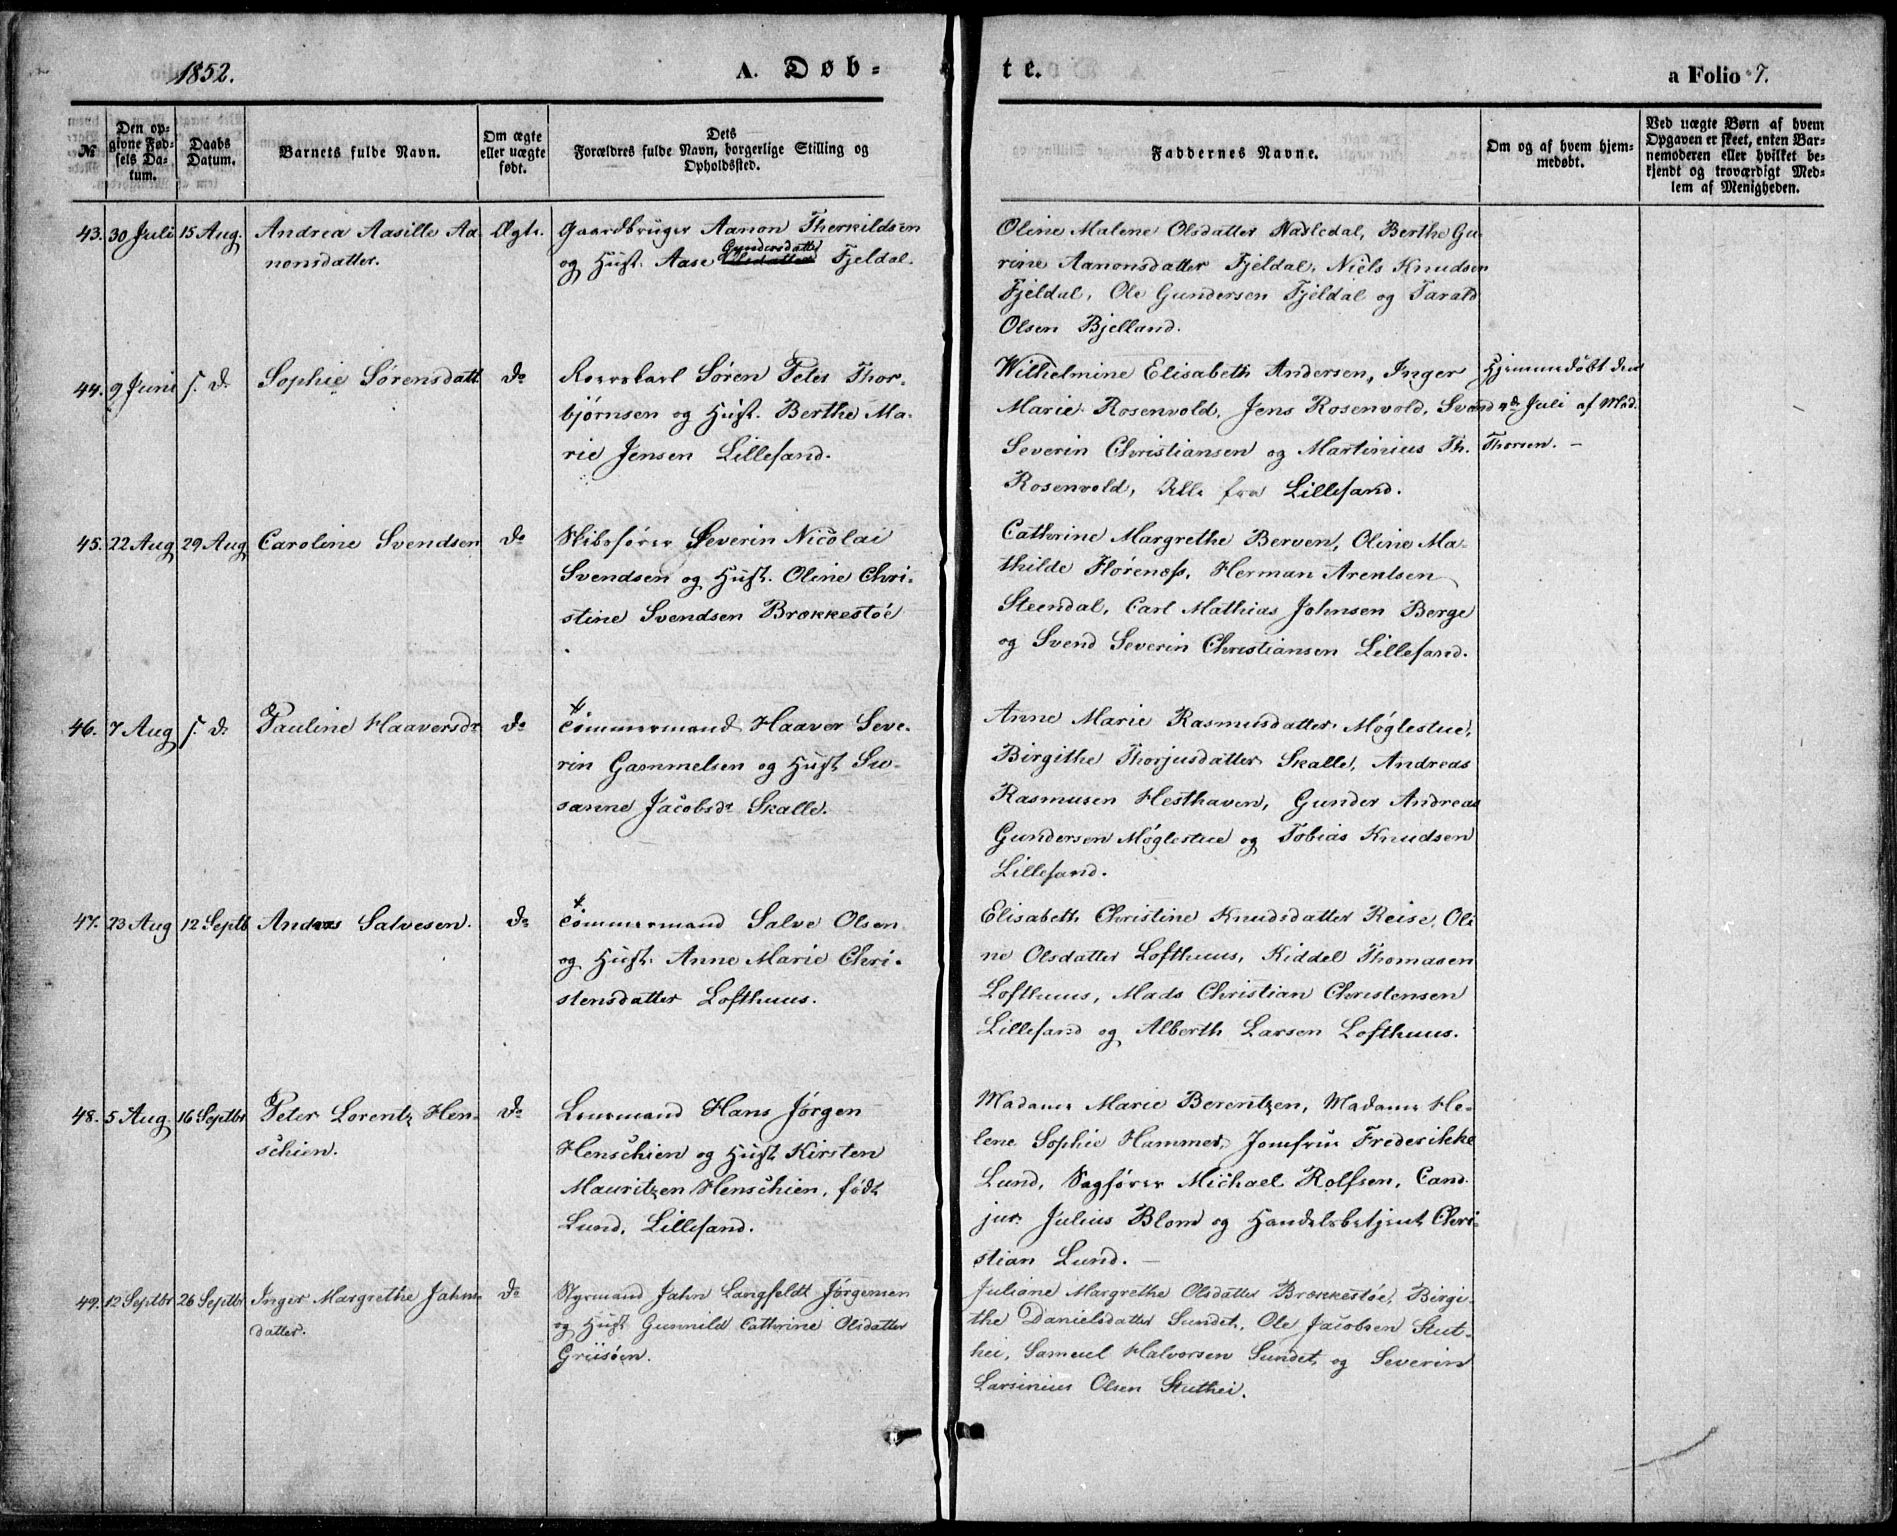 1852.
A. Døb-
te.
a Folio 7.
№
Den op-
givne Fød-
sels Da-
tum.
Daabs
Datum.
Barnets fulde Navn.
Om ægte
eller uægte
født.
Dets
Forældres fulde Navn, borgerlige Stilling og
Opholdssted.
Faddernes Navne.
Om og af hvem hjem-
medøbt.
Ved uægte Børn af hvem
Opgaven er skeet, enten Bar-
nemoderen eller hvilket be-
kjendt og troværdigt Med-
lem af Menigheden.
43. 30 Juli 15 Aug. Andrea Aasille Aa-
nonsdatter.
Ægte.
Gaardbruger Aanon Therkildsen
Gundersdatter
og Hust. Aase Olsdatter Fjeldal.
Oline Malene Olsdatter Nadledal, Berthe Gu-
rine Aanonsdatter Fjeldal, Niels Knudsen
Fjeldal, Ole Gundersen Fjeldal og Tarald
Olsen Bjelland.
44. 9 Juni s. D. Sophie Sørensdatt
do
Roerskarl Søren Peter Thor-
bjørnsen og Hust. Berthe Ma-
rie Jensen Lillesand.
Wilhelmine Elisabeth Andersen, Inger
Marie Rosenvold, Jens Rosenvold, Svend
Severin Christiansen og Martinius Th.
Rosenvold, Alle fra Lillesand.
Hjemmedøbt den
4de Juli af Mad.
Thorsen. –
45. 22 Aug 29 Aug Caroline Svendsen
do
Skibsfører Severin Nicolai
Svendsen og Hust. Oline Chri-
stine Svendsen Brækkestøe
Cathrine Margrethe Berven, Oline Ma-
thilde Florenæs, Herman Arentsen
Steendal, Carl Mathias Johnsen Berge
og Svend Severin Christiansen Lillesand.
46. 7 Aug s. D. Pauline Haaversdr
do
Tømmermand Haaver Seve-
rin Gammelsen og Hust Su-
sanne Jacobsdr Skalle.
Anne Marie Rasmusdatter Møglestue,
Birgithe Thorjusdatter Skalle, Andreas
Rasmusen Hesthaven, Gunder Andreas
Gundersen Møglestue og Tobias Knudsen
Lillesand.
47. 23 Aug 12 Septb Andreas Salvesen.
do
Tømmermand Salve Olsen
og Hust. Anne Marie Chri-
stensdatter Lofthuus.
Elisabeth Christine Knudsdatter Reise, Oli
ne Olsdatter Lofthuus, Kiddel Thomasen
Lofthuus, Mads Christian Christensen
Lillesand og Alberth Larsen Lofthuus.
48. 5 Aug. 16 Septbr Peter Lorentz Hen-
schien.
do
Lensmand Hans Jørgen
Henschien og Hust Kirsten
Mauritzen Henschien, født
Lund, Lillesand.
Madame Marie Berentzen, Madame He-
lene Sophie Hammer, Jomfru Frederikke
Lund, Sagfører Michael Rolfsen, Cand.
jur. Julius Blom og Handelsbetjent Chri-
stian Lund. –
49. 12 Septbr 26 Septbr Inger Margrethe Jahns-
datter.
do
Styrmand Jahn Langfeldt Jørgensen
og Hust Gunnild Cathrine Olsdatter
Griisøen.
Juliane Margrethe Olsdatter Brækkestøe, Birgi-
the Danielsdatter Sundet, Ole Jacobsen Stut-
hei, Samuel Halvorsen Sundet og Severin
Larsinius Olsen Stuthei.